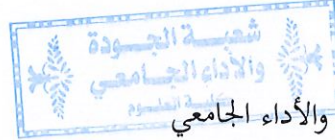 شعبة الجودة
والأداء الجامعي
كلية العلوم
والأداء الجامعي